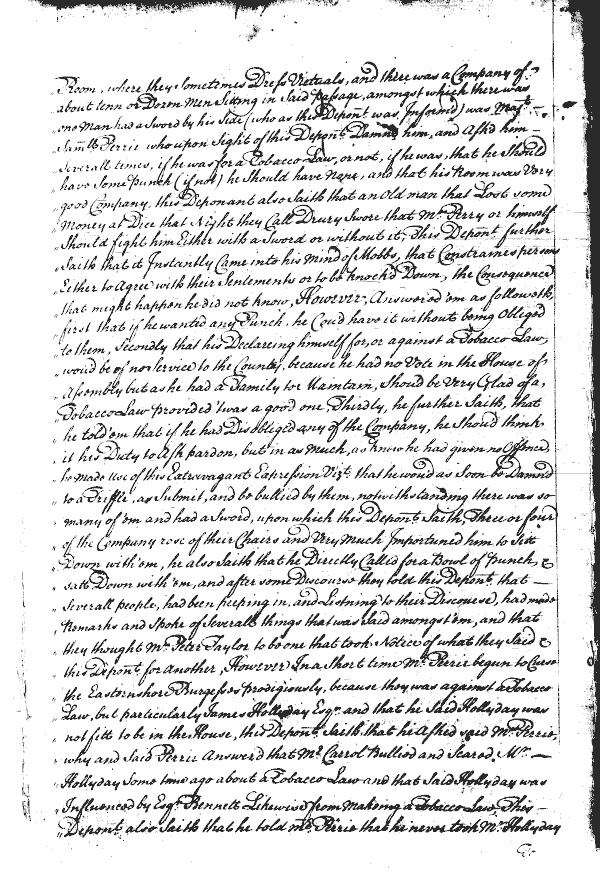 Room, where they sometimes Dress Victuals, and there was a Company of
about tenn or Dozen Men Sitting in Said passage, amongst which there was
one Man had a Sword by his Side (who as this Depont. was Informed) was Majr.
Samll. Perrie who upon Sight of this Depont. Damnd him, and Ask'd him
Severall times, if he was for a Tobacco Law, or not, if he was, that he Should
have Some punch (if not) he Should have None, and that his Room was Very
good Company, this Deponant also Saith that an Old man that Lost some
Money at Dice that Night they Call Drury Swore that Mr. Perry or himself
Should fight him Either with a Sword or without it, This Depont. further
Saith that it Instantly Came into his Mind of Mobbs, that Constraines persons
Either to Agree with their Sentements or to be knock'd Down, the Consequence
that might happen he did not know, However, Answered 'em as followeth,
first that if he wanted any Punch, he Coud have it without being Obliged
to them, Secondly that his Declareing himself for, or against a Tobacco Law,
woud be of no Service to the County, because he had no Vote in the House of
Assembly but as he had a Family to Maintain, Shoud be Very Glad of a,
Tobacco Law provided 'twas a good one, Thirdly, he further Saith, that
he told 'em that if he had Disobliged any of the Company, he Shoud think
it his Duty to Ask pardon, but in as Much, as know he had given no Offence,
he made Use of this Extravagant Expression Vizt. that he woud as Soon be Damnd
to a Triffle, as Submit, and be bullied by them, notwithstanding there was so
many of 'em and had a Sword, upon which this Depont. Saith, Three or four
of the Company rose of their Chairs and Very Much Importuned him to Sitt
Down with 'em, he also Saith that he Directly Call'd for a Bowl of Punch, &
satt Down with 'em, and after some Discourse they told this Depont. that —
Severall people, had been peeping in, and Listning to their Discourse, had made
Remarks and Spoke of Severall things that was Said amongst 'em, and that
they thought Mr. Peter Taylor to be one that took Notice of what they Said &
this Depont. for Another, However In a Short time Mr. Perrie begun to Curse
the Eastern Shore Burgesses prodigiously, because they was against a Tobacco
Law, but particularly James Hollyday Esqr. and that he Said Hollyday was
not fitt to be in the House, this Depont. Saith that he Asked said Mr. Perrie,
why and Said Perrie Answerd that Mr. Carrol Bullied and Scared, Mr. —
Hollyday Some time ago about a Tobacco Law and that Said Hollyday was
Influenced by Esqr. Bennett Likewise from making a Tobacco Law, This —
Depont. also Saith that he told Mr. Perrie that he never took Mr. Hollyday